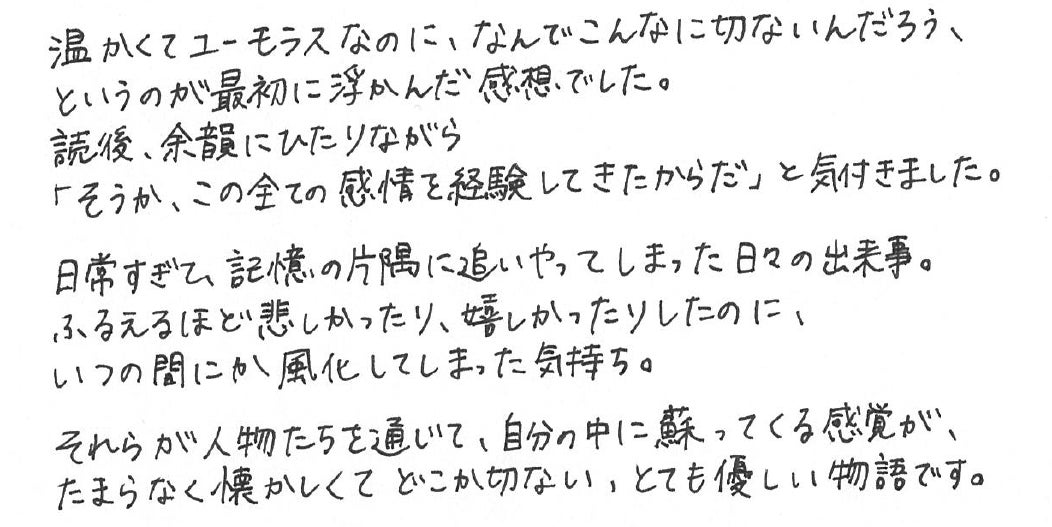 温かくてユーモラスなのに、なんでこんなに切ないんだろう、
というのが最初に浮かんだ感想でした。
読後、余韻にひたりながら
「そうか、この全ての感情を経験してきたからだ」と気付きました。
日常すぎて、記憶の片隅に追いやってしまった日々の出来事。
ふるえるほど悲しかったり、嬉しかったりしたのに、
いつの間にか風化してしまった気持ち。
それらが人物たちを通じて、自分の中に蘇ってくる感覚が、
たまらなく懐かしくてどこか切ない、とても優しい物語です。